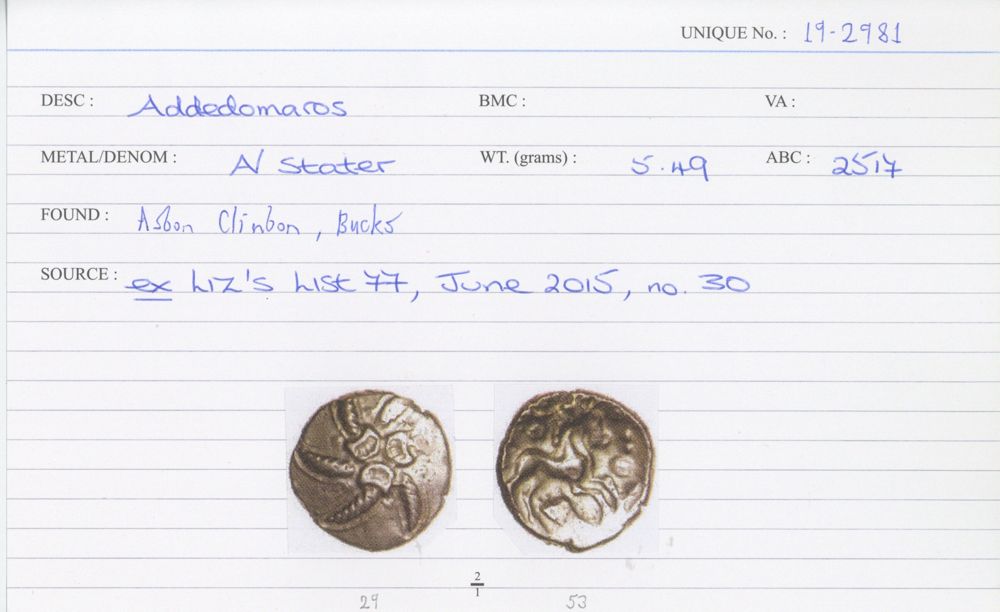 UNIQUE No. : 19-2981
DESC : Addedomaros BMC : VA :
METAL/DENOM : A/ Stater WT. (grams) : 5.49 ABC : 2517
FOUND : Aston Clinton, Bucks
SOURCE : ex Liz's List 77, June 2015, no. 30
2
1
29 53